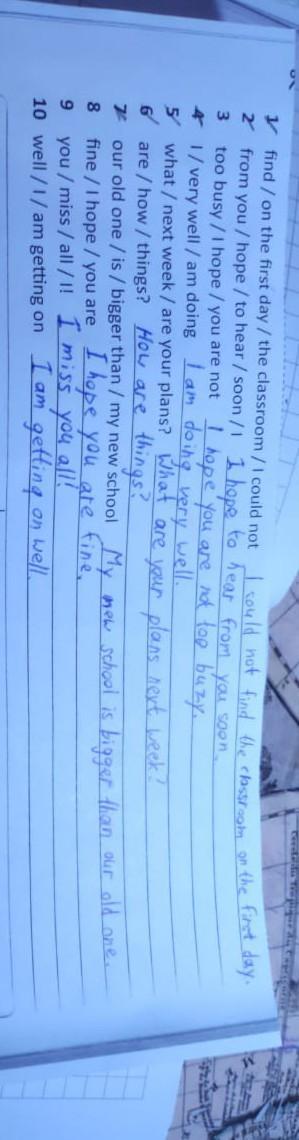 1 find / on the first day / the classroom / I could not I could not find the classroom on the first day.
2 from you / hope / to hear / soon / I I hope to hear from you soon.
3 too busy / I hope / you are not I hope you are not too buzy.
4 I / very well / am doing I am doing very well.
5 what / next week / are your plans? What are your plans next week?
6 are / how / things? How are things?
7 our old one / is / bigger than / my new school My new school is bigger than our old one.
8 fine / I hope / you are I hope you are fine.
9 you / miss / all / I! I miss you all!
10 well / I / am getting on I am getting on well.